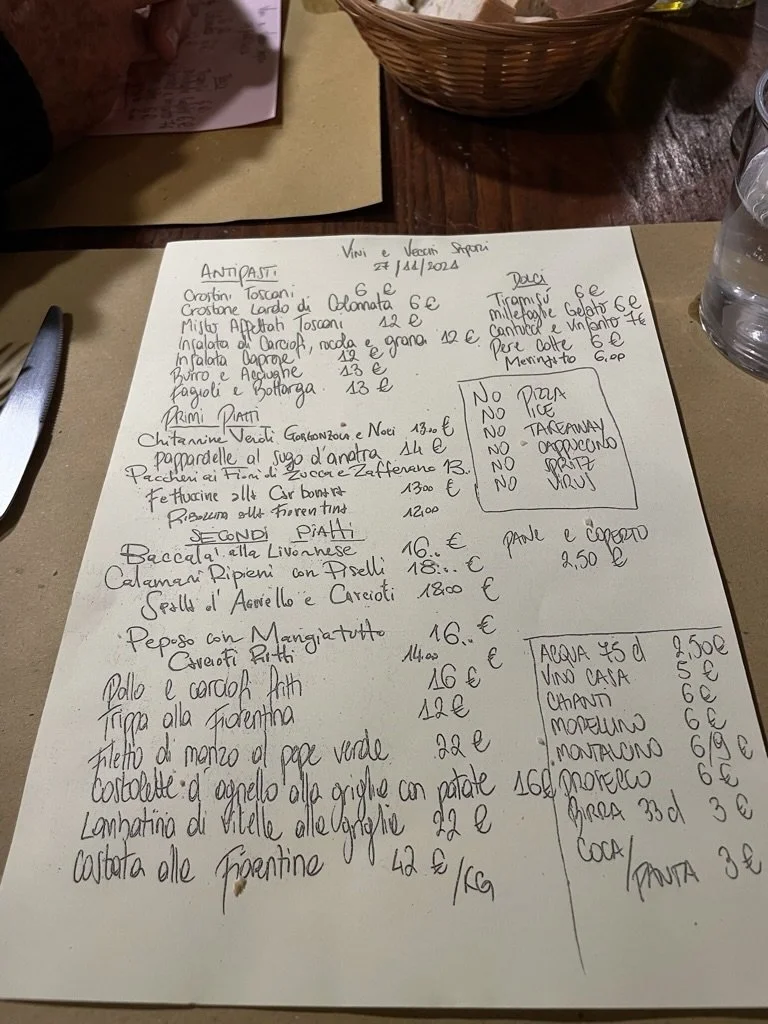 Vini e Vecchi Sapori
27/11/2021
ANTIPASTI
Crostini Toscani 6 €
Crostone Lardo di Colonnata 6 €
Misto Affettati Toscani 12 €
Insalata di Carciofi, rucola e grana 12 €
Insalata Caprese 12 €
Burro e Acciughe 13 €
Fagioli e Bottarga 13 €
PRIMI PIATTI
Chitarrine Verdi Gorgonzola e Noci 13.00 €
pappardelle al sugo d'anatra 14 €
Paccheri ai Fiori di Zucca e Zafferano 13..
Fettuccine alla Carbonara 13.00 €
Ribollita alla Fiorentina 12.00
SECONDI PIATTI
Baccalà alla Livornese 16.. €
Calamari Ripieni con Piselli 18... €
Spalla d'Agnello e Carciofi 18.00 €
Peposo con Mangiatutto 16.. €
Carciofi Fritti 14.00 €
Pollo e carciofi fritti 16 €
Trippa alla Fiorentina 12 €
Filetto di manzo al pepe verde 22 €
Costolette d'agnello alla griglia con patate 16 €
Lombatina di vitella alla griglia 22 €
Costata alla Fiorentina 42 €/KG
Dolci
Tiramisù 6 €
millefoglie Gelato 6 €
cantucci e Vinsanto 7 €
Pere Cotte 6 €
Meringato 6,00
NO PIZZA
NO ICE
NO TAKEAWAY
NO CAPPUCCINO
NO SPRITZ
NO VIRUS
PANE e COPERTO
2,50 €
ACQUA 75 cl 2,50 €
VINO CASA 5 €
CHIANTI 6 €
MORELLINO 6 €
MONTALCINO 6/9 €
PROSECCO 6 €
BIRRA 33 cl 3 €
COCA/FANTA 3 €